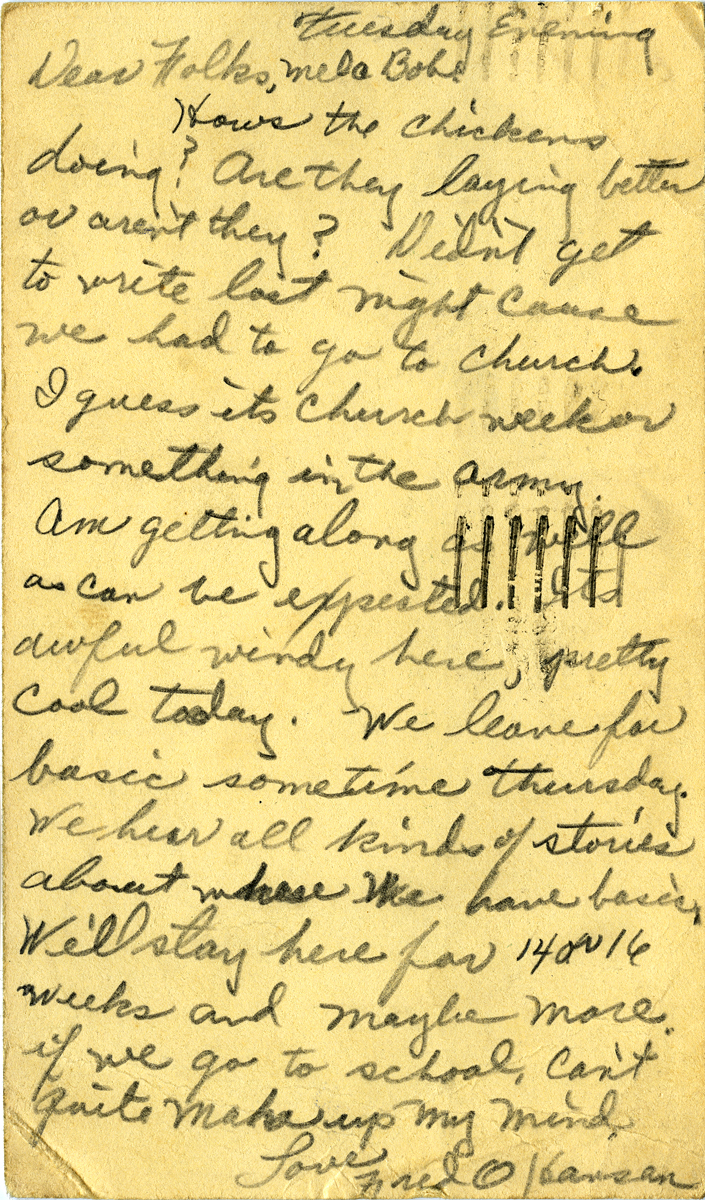 Tuesday Evening
Dear Folks, Mel & Bob.
Hows the chickens
doing? Are they laying better
or aren't they? Didn't get
to write last night cause
we had to go to church.
I guess its church week or
something in the army.
Am getting along as well
as can be expected. Its
awful windy here, pretty
cool today. We leave for
basic sometime Thursday.
We hear all kinds of stories
about where we have basic.
We'll stay here for 14 or 16
weeks and maybe more
if we go to school, Can't
quite make up my mind.
Love
Fred O Hansan